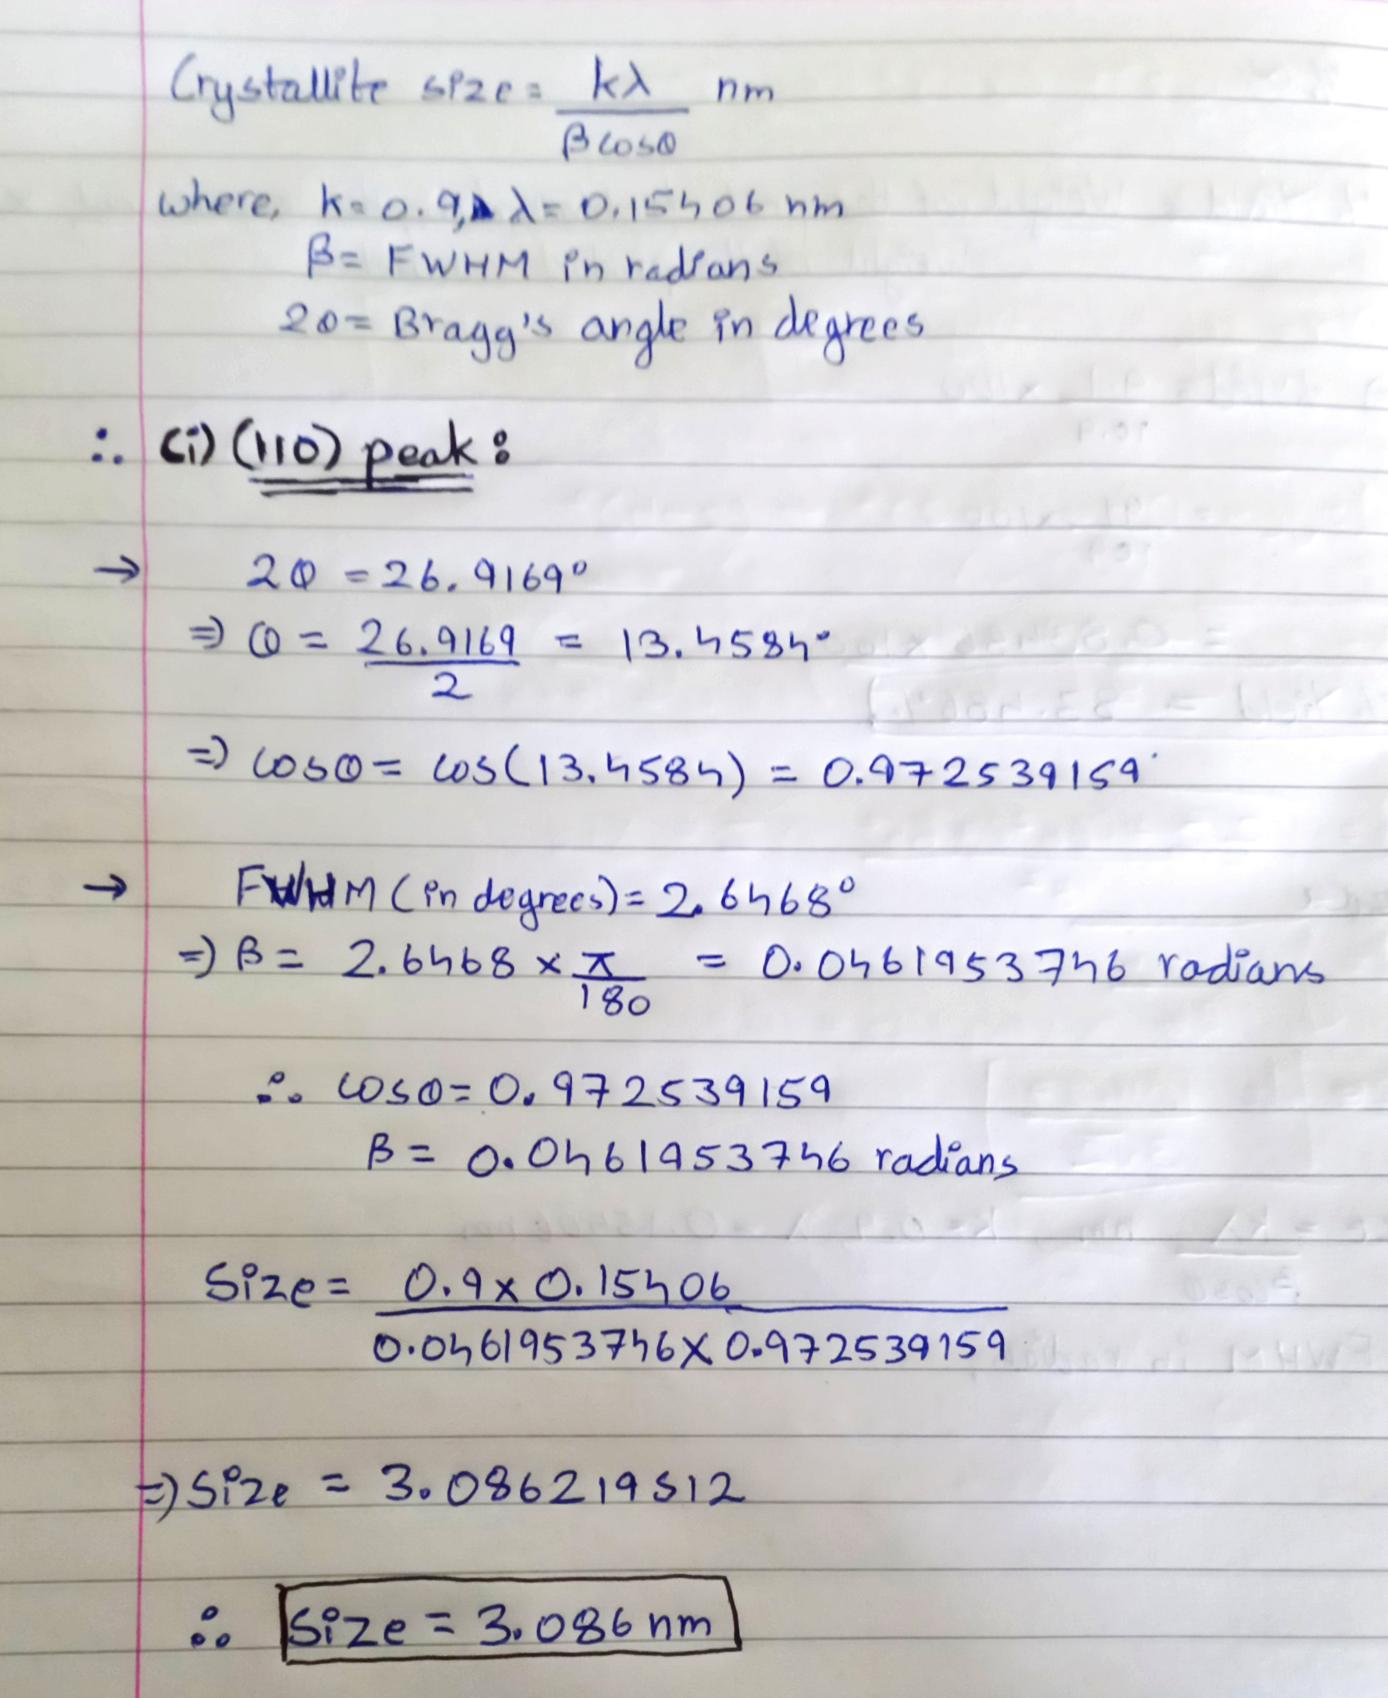 Crystallite size = kλ / βcosθ nm
where, k = 0.9, λ = 0.15406 nm
β = FWHM in radians
2θ = Bragg's angle in degrees
∴ (i) (110) peak:
→ 2θ = 26.9169°
⇒ θ = 26.9169 / 2 = 13.4584°
⇒ cosθ = cos(13.4584) = 0.972539159
→ FWHM (in degrees) = 2.6468°
⇒ β = 2.6468 × π / 180 = 0.0461953746 radians
∴ cosθ = 0.972539159
β = 0.0461953746 radians
Size = 0.9 × 0.15406 / 0.0461953746 × 0.972539159
⇒ Size = 3.086219512
∴ Size = 3.086 nm